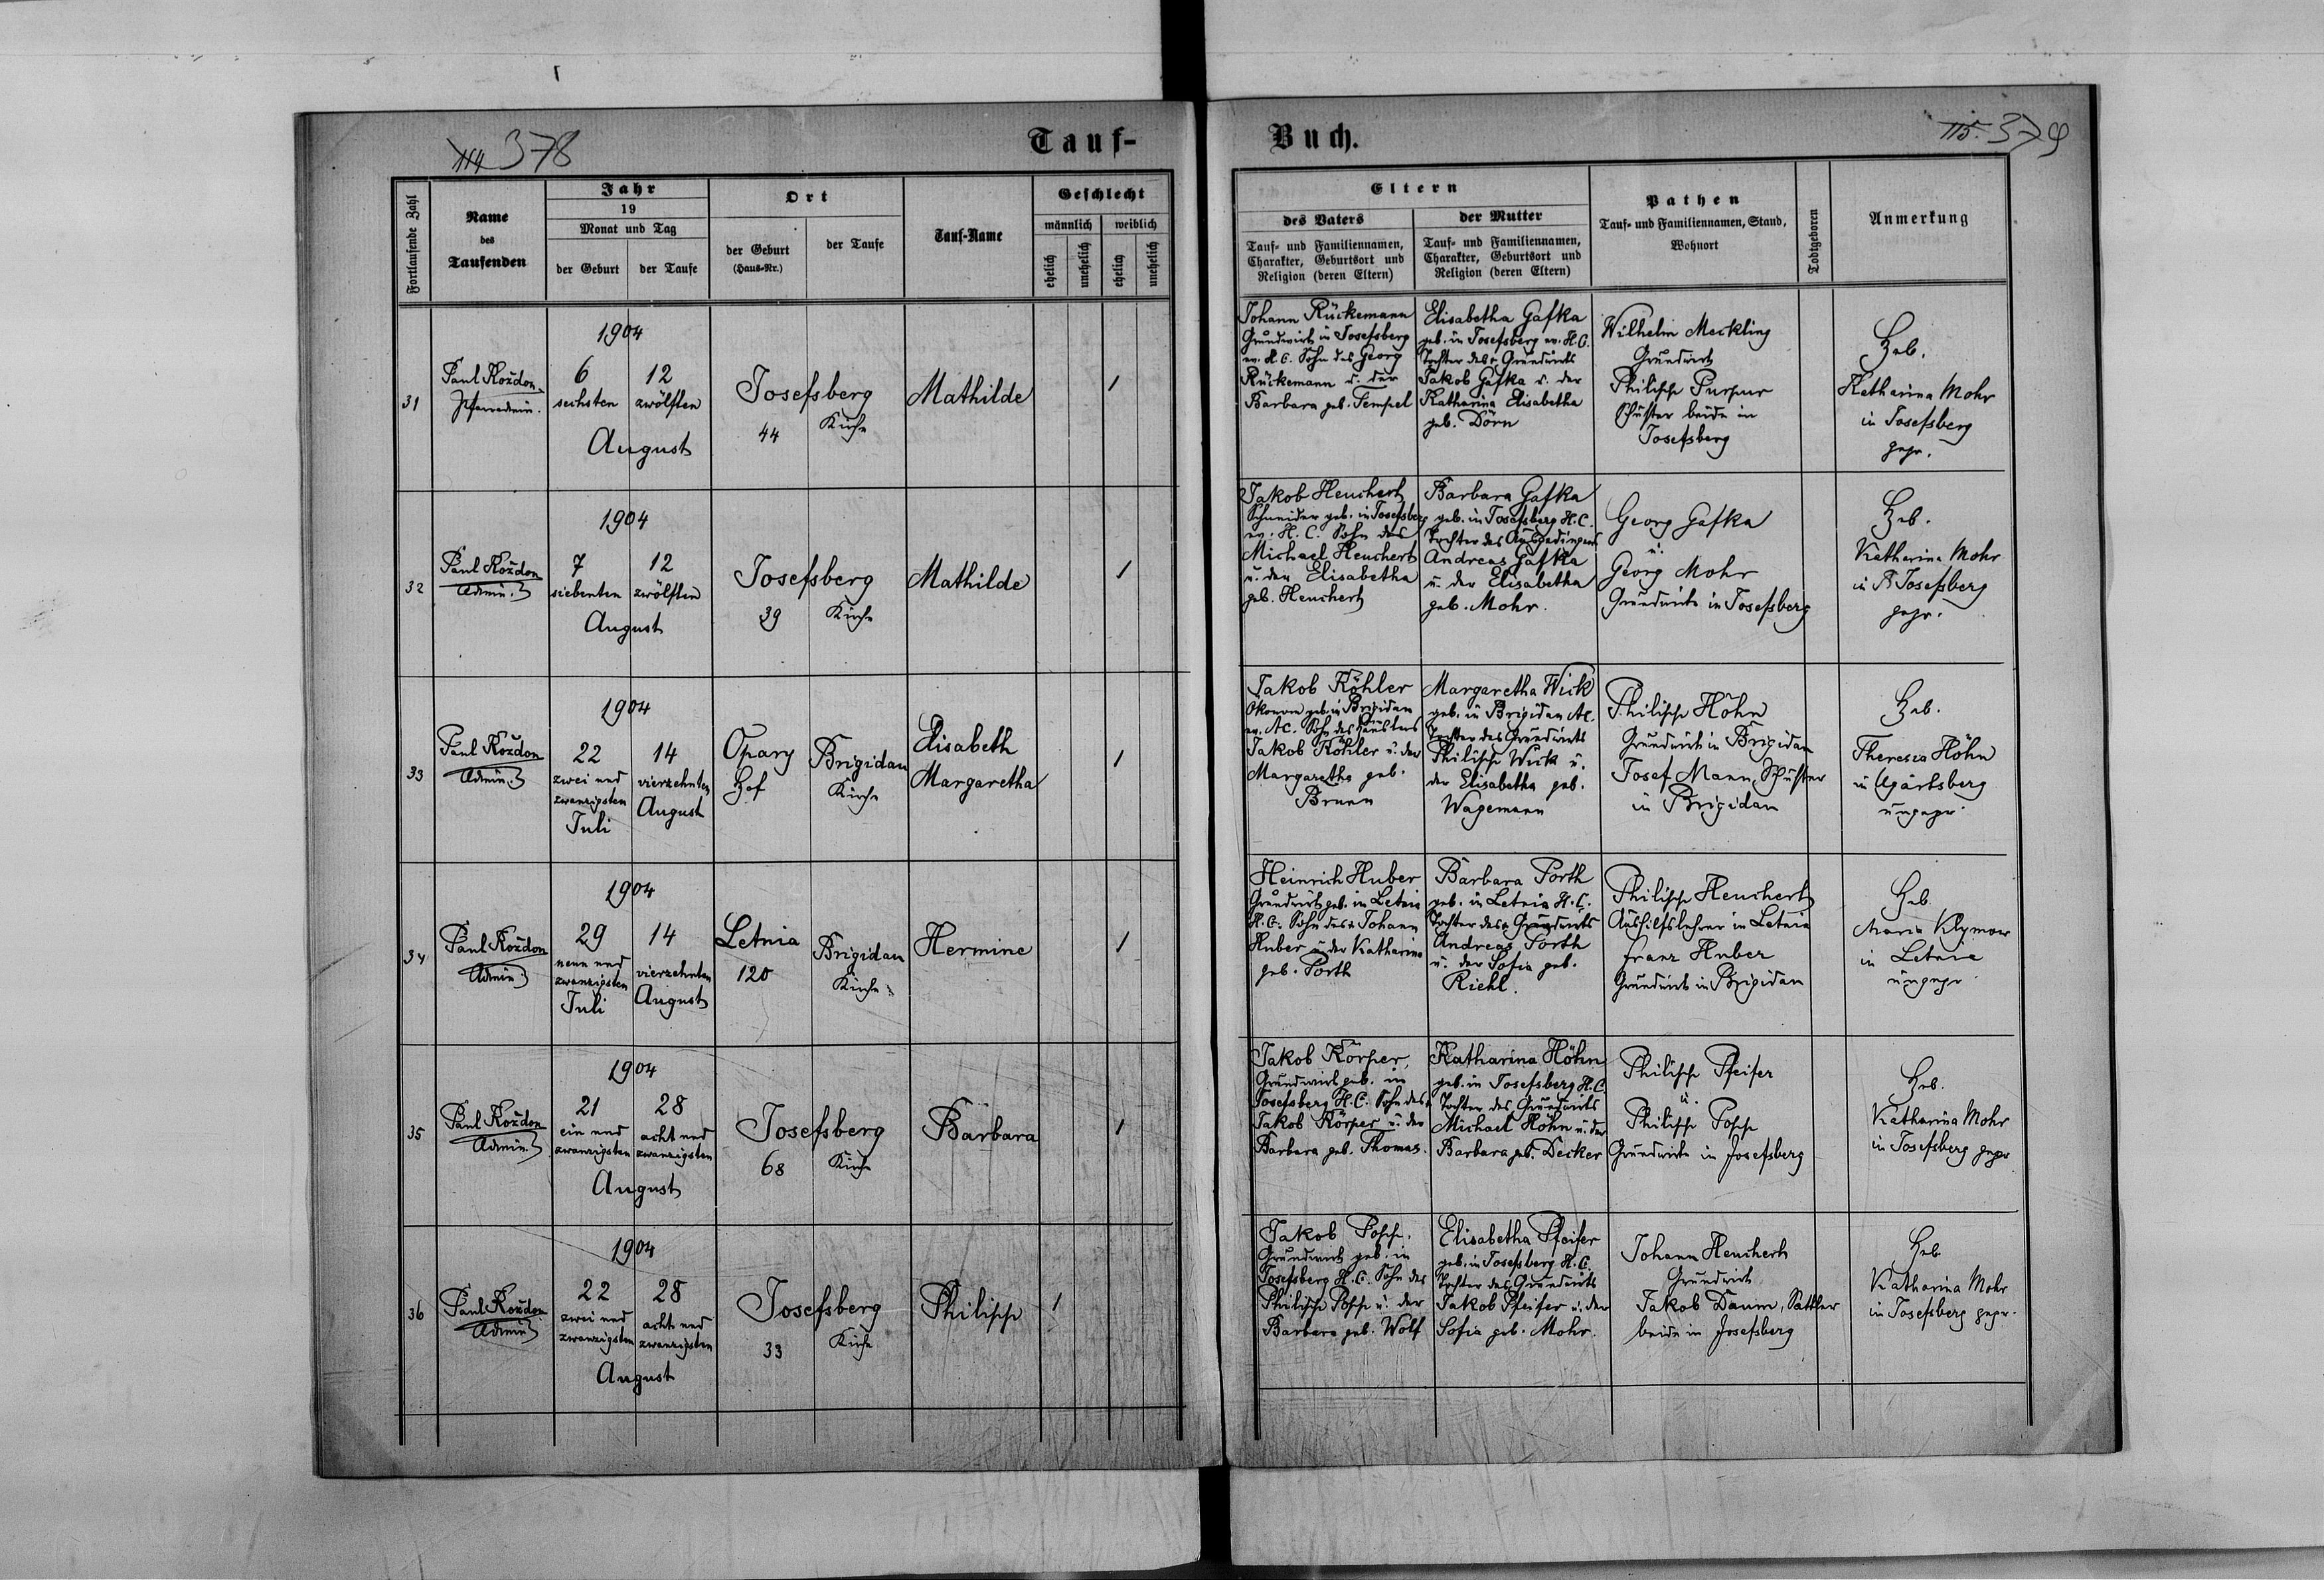 114 378
Tauf-
Fortlaufende Zahl
Name
des
Taufenden
Jahr
19
Monat und Tag
der Geburt
der Taufe
Ort
der Geburt
(Haus-Nr.)
der Taufe
Tauf-Name
Geschlecht
männlich
weiblich
ehelich
unehelich
ehelich
unehelich
Buch.
115. 379
Eltern
des Vaters
Tauf- und Familiennamen,
Charakter, Geburtsort und
Religion (deren Eltern)
der Mutter
Tauf- und Familiennamen,
Charakter, Geburtsort und
Religion (deren Eltern)
Pathen
Tauf- und Familiennamen, Stand,
Wohnort
Todtgeboren
Anmerkung
31
Paul Kożdon
Pfarradmin.
1904
6
sechsten
12
zwölften
August
Josefsberg
44
Kirche
Mathilde
1
Johann Rückemann
Grundwirt in Josefsberg
ev. H.C. Sohn des Georg
Rückemann u. der
Barbara geb. Tempel
Elisabetha Gafka
geb. in Josefsberg ev. H.C.
Tochter des Grundwirts
Jakob Gafka u. der
Katharina Elisabetha
geb. Dörn
Wilhelm Meckling
Grundwirt
Philipp Purpur
Schuster beide in
Josefsberg
Heb.
Katharina Mohr
in Josefsberg
gepr.
32
Paul Kożdon
Admin.
1904
7
siebenten
12
zwölften
August
Josefsberg
39
Kirche
Mathilde
1
Jakob Heuchert
Schneider geb. in Josefsberg
ev. H.C. Sohn des
Michael Heuchert
u. der Elisabetha
geb. Heuchert
Barbara Gafka
geb. in Josefsberg H.C.
Tochter des Ausgedingers
Andreas Gafka
u. der Elisabetha
geb. Mohr.
Georg Gafka
u.
Georg Mohr
Grundwirte in Josefsberg
Heb.
Katharina Mohr
in Josefsberg
gepr.
33
Paul Kożdon
Admin.
1904
22
zwei und
zwanzigsten
Juli
14
vierzehnten
August
Opary
Hof
Brigidau
Kirche
Elisabeth
Margaretha
1
Jakob Köhler
Ökonom geb. in Brigidau
ev. AC. Sohn des
Jakob Köhler u. der
Margaretha geb.
Brunn
Margaretha Wick
geb. in Brigidau AC.
Tochter des Grundwirts
Philipp Wick u.
der Elisabetha geb.
Wagemann
Philipp Höhn
Grundwirt in Brigidau
Josef Mann, Schuster
in Brigidau
Heb.
Theresia Höhn
in Ugartsberg
ungepr.
34
Paul Kożdon
Admin.
1904
29
neun und
zwanzigsten
Juli
14
vierzehnten
August
Letnia
120
Brigidau
Kirche
Hermine
1
Heinrich Huber
Grundwirt geb. in Letnia
H.C. Sohn des Johann
Huber u. der Katharina
geb. Porth
Barbara Porth
geb. in Letnia H.C.
Tochter des Grundwirts
Andreas Porth
u. der Sofia geb.
Riehl.
Philipp Heuchert
Aushilfslehrer in Letnia
Franz Huber
Grundwirt in Brigidau
Heb.
Maria Klymow
in Letnia
ungepr.
35
Paul Kożdon
Admin.
1904
21
ein und
zwanzigsten
28
acht und
zwanzigsten
August
Josefsberg
68
Kirche
Barbara
1
Jakob Körper,
Grundwirt geb. in
Josefsberg H.C. Sohn des
Jakob Körper u. der
Barbara geb. Thomas.
Katharina Höhn
geb. in Josefsberg H.C.
Tochter des Grundwirts
Michael Höhn u. der
Barbara geb. Decker
Philipp Pfeifer
u.
Philipp Popp
Grundwirte in Josefsberg
Heb.
Katharina Mohr
in Josefsberg gepr
36
Paul Kożdon
Admin.
1904
22
zwei und
zwanzigsten
28
acht und
zwanzigsten
August
Josefsberg
33
Kirche
Philipp
1
Jakob Popp.
Grundwirt geb. in
Josefsberg H.C. Sohn des
Philipp Popp u. der
Barbara geb. Wolf
Elisabetha Pfeifer
geb. in Josefsberg H.C.
Tochter des Grundwirts
Jakob Pfeifer u. der
Sofia geb. Mohr.
Johann Heuchert
Grundwirt
Jakob Daum, Sattler
beide in Josefsberg
Heb.
Katharina Mohr
in Josefsberg gepr.